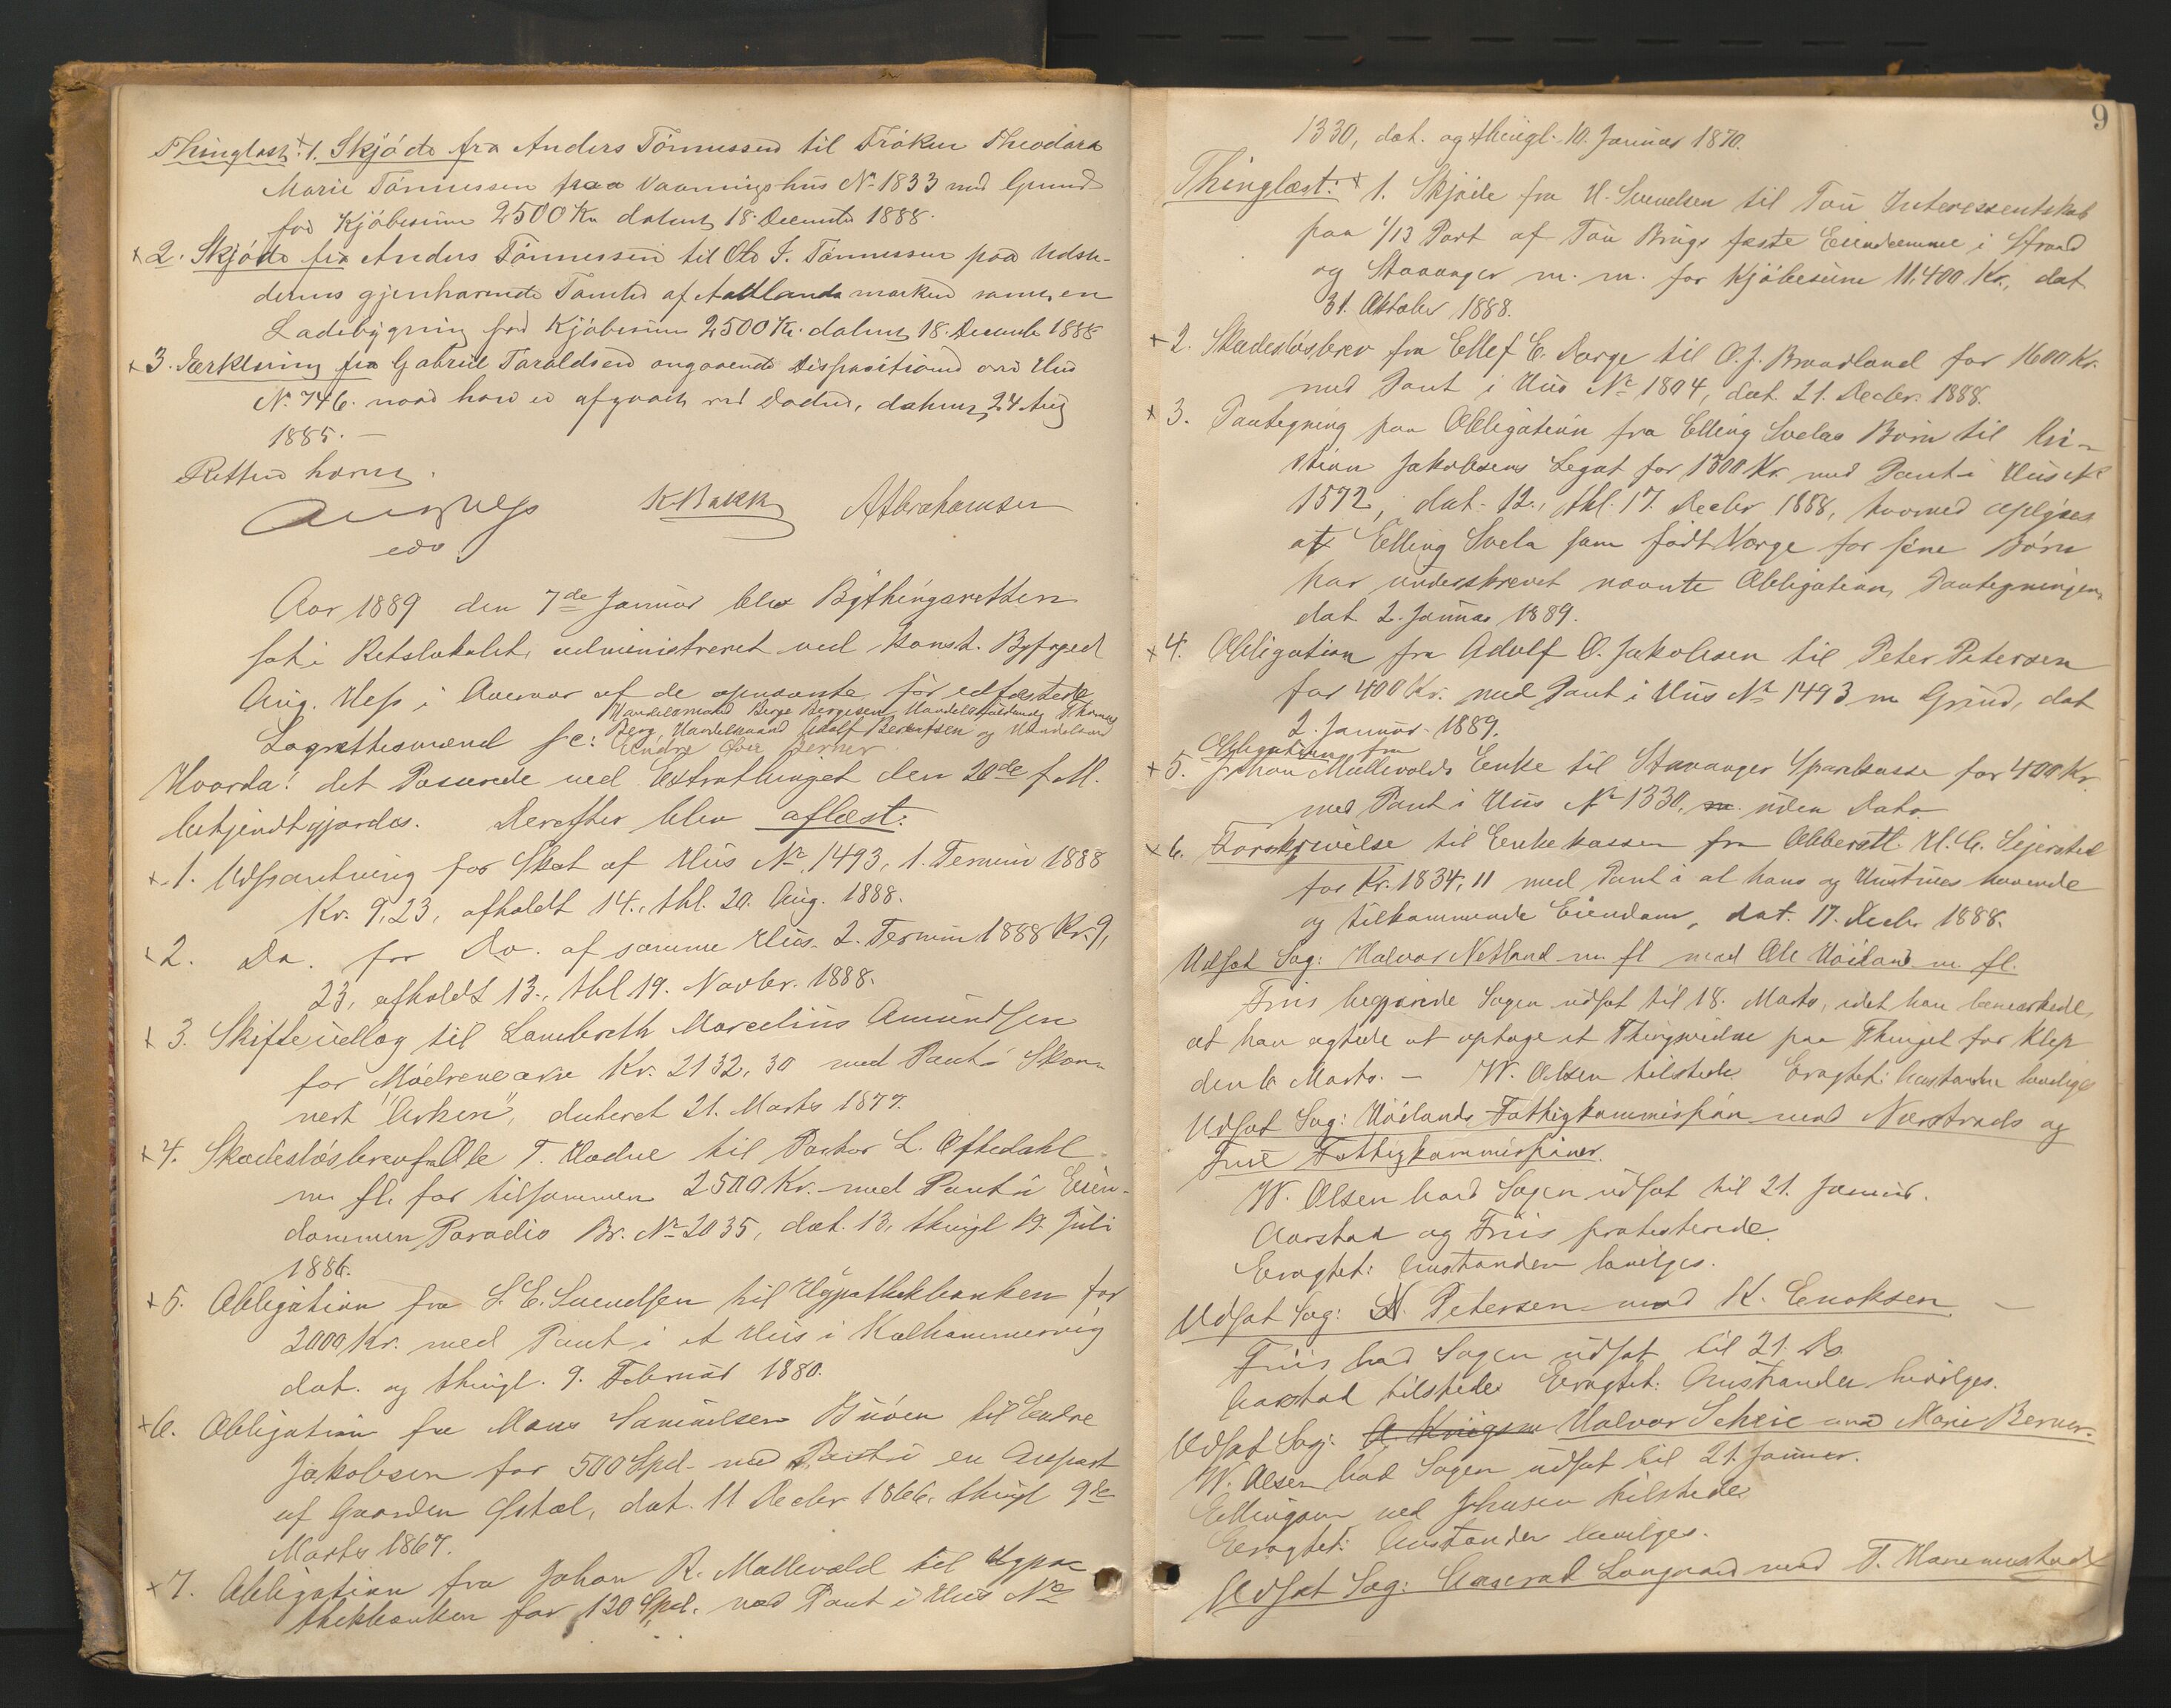 Thinglæst: + 1. Skjöde fra Anders Tönnessen til Fröken Theodora
Marie Tönnessen paa Vaaningshus No 1833 med Grund
for Kjöbesum 2500 Kr dateret 18. December 1888.
+ 2. Skjöde fra Anders Tönnessen til Ole J. Tönnessen paa Udste-
derens gjenhavende Tomter af marken samt en
Ladebygning for Kjöbesum 2500 Kr. dateret 18. Decemb 1888
+ 3. Erklæring fra Gabriel Taraldsen angaaende Dispositionen over Hus
No. 746. naar han er afgaaet ved Döden, dateret 24 Aug
1885. —
Retten hævet.
Aug Hess K Bakk A Abrahamsen
edv
Aar 1889 den 7de Januar blev Bythingsretten
sat i Retslokalet, administreret ved Const. Byfoged
Aug. Hess i Overvær af de opnævnte, för edfæstede
Handelsmand Berge Bergesen, Handelsfuldmægt Thomas
Berg, Handelsmand Adolf Berentsen og Handelsmand
Lagrettesmænd sc: Endre Berner
Hvorda! det Passerede ved Extrathinget den 20de f. M.
bekjendtgjordes. Derefter blev aflæst:
+ 1. Udpantning for Skat af Hus No. 1493, 1. Termin 1888
Kr. 9,23, afholdt 14., thl. 20. Aug. 1888.
+ 2. Do. for Do. af samme Hus. 2. Termin 1888 Kr. 9,
23, afholdt 13., thl 19. Novbr. 1888.
+ 3. Skifteudlæg til Lambreth Marcelius Amundsen
for Mödrenearv Kr. 2132,30 med Pant i Skon-
nert "Arken", dateret 21. Marts 1877.
+ 4. Skadeslösbrev fra Ole T. Hadne til Pastor L. Oftedahl
m. fl. for tilsammen 2500 Kr. med Pant i Eien-
dommen Paradis Br. No 2035, dat. 13, thingl 19. Juli
1886.
+ 5. Obligation fra S. E. Svendsen til Hypothekbanken for
2000 Kr. med Pant i et Hus i Kalhammervig
dat. og thingl. 9. Februar 1880.
+ 6. Obligation fra Mons Samuelsen Buöen til Endre
Jakobsen for 500 Spd. med Pant i en Anpart
af Gaarden , dat. 11 Decbr 1866, thingl 9de
Marts 1867.
+ 7. Obligation fra Johan R. Mallevold til Hypo-
thekbanken for 120 Spd. med Pant i Hus No
9
1330, dat. og thingl. 10. Januar 1870.
Thinglæst: + 1. Skjöde fra H. Svendsen til Tou Interessentskab
paa 1/13 Part af Tou Brugs faste Eiendomme i Strand
og Stavanger m. m. for Kjöbesum 11,400 Kr., dat
31. Oktober 1888.
+ 2. Skadeslösbrev fra Ellef E. Dorge til O. J. Braadland for 1600 Kr.
med Pant i Hus No 1804, dat. 21. Decbr. 1888.
+ 3. Paategning paa Obligation fra Elling Svelas Börn til Kri-
stian Jakobsens Legat for 1300 Kr. med Pant i Hus No
1572, dat. 12., thl. 17. Decbr 1888, hvorved oplyses
at Elling Svela som födt Værge for sine Börn
har underskrevet nævnte Obligation, Paategningen
dat 2. Januar 1889.
+ 4. Obligation fra Adolf O. Jakobsen til Peter Petersen
for 400 Kr. med Pant i Hus No 1493 m Grund, dat
2. Januar 1889.
Obligation fra
+ 5. Johan Mallevolds Enke til Stavanger Sparekasse for 400 Kr.
med Pant i Hus No 1330, m. uden Dato.
+ 6. Forskrivelse til Enkekassen fra Oberstl. H. C. Sejersted
for Kr. 1834,11 med Pant i al hans og Hustrues havende
og tilkommende Eiendom, dat. 17. Decbr 1888.
Udsat Sag: Halvor Netland m. fl mod Ole Höiland m. fl.
Friis begjærede Sagen udsat til 18. Marts, idet han bemærkede,
at han agtede at optage et Thingsvidne paa Thinget for Klep
den 6 Marts. — W. Olsen tilstede. Eragtet: Anstanden bevilges
Udsat Sag: Höilands Fattigkommission mod Nærstrands og
Fattigkommissioner.
W. Olsen bad Sagen udsat til 21. Januar.
Aarstad og Friis protesterede.
Eragtet: Anstanden bevilges.
Udsat Sag: N. Petersen mod K. Enoksen —
Friis bad Sagen udsat til 21. Do.
Aarstad tilstede. Eragtet: Anstanden bevilges.
Udsat Sag: Halvor Scheie mod Marie Berner.
W. Olsen bad Sagen udsat til 21. Januar.
Ellingsen ved Johnsen tilstede
Eragtet: Anstanden bevilges.
Udsat Sag: Langaard mod T. Hammerstad